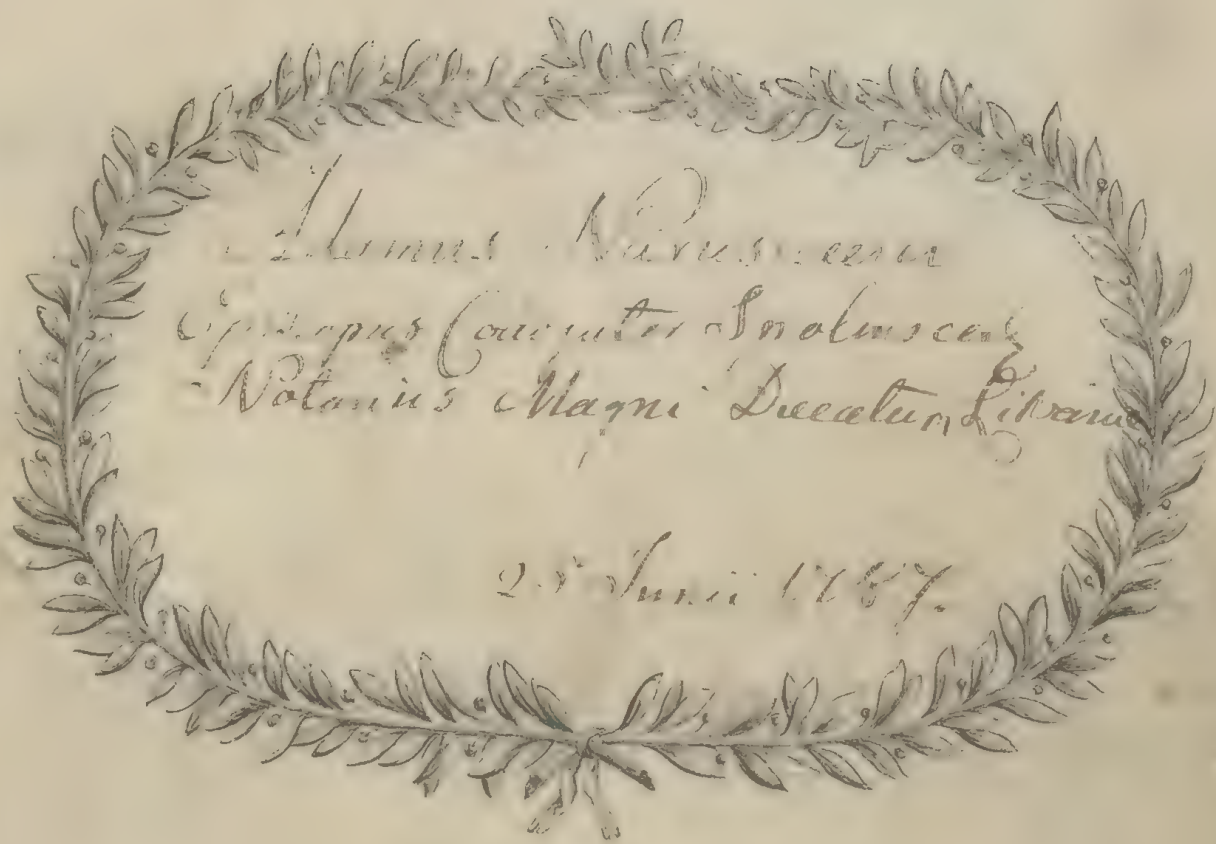 Adamus Naruszewicz
Episcopus Coadjutor Smolenscensis
Notarius Magni Ducatus Lithuaniae
28 Junii 1787.